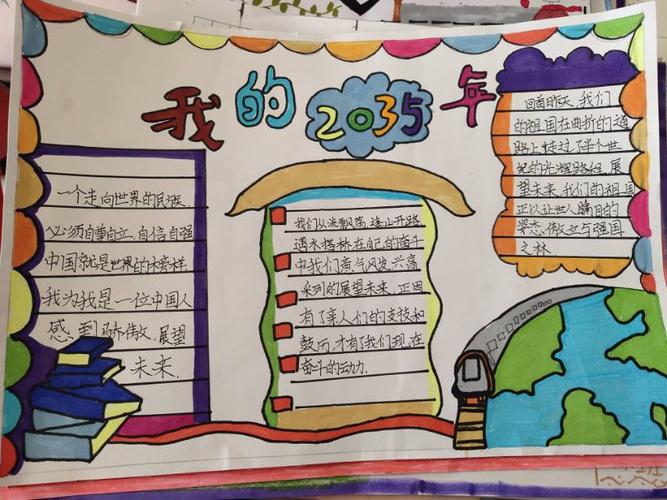 我的2035年
一个走向世界的民族,
必须自尊自立,自信自强
中国就是世界的榜样
我为我是一位中国人
感到骄傲,展望
未来.
我们从流飘荡,逢山开路
遇水搭桥在自己的奋斗
中我们意气风发,兴高
采列的展望未来,正因
有了亲人们的支技和
鼓历,才有了我们现在
奋斗的动力.
回首昨天,我们
的祖国在曲折的道
路上走过了半个世
纪的光辉路程,展
望未来,我们的祖国
正以让世人瞩目的
姿态,傲立与强国
之林